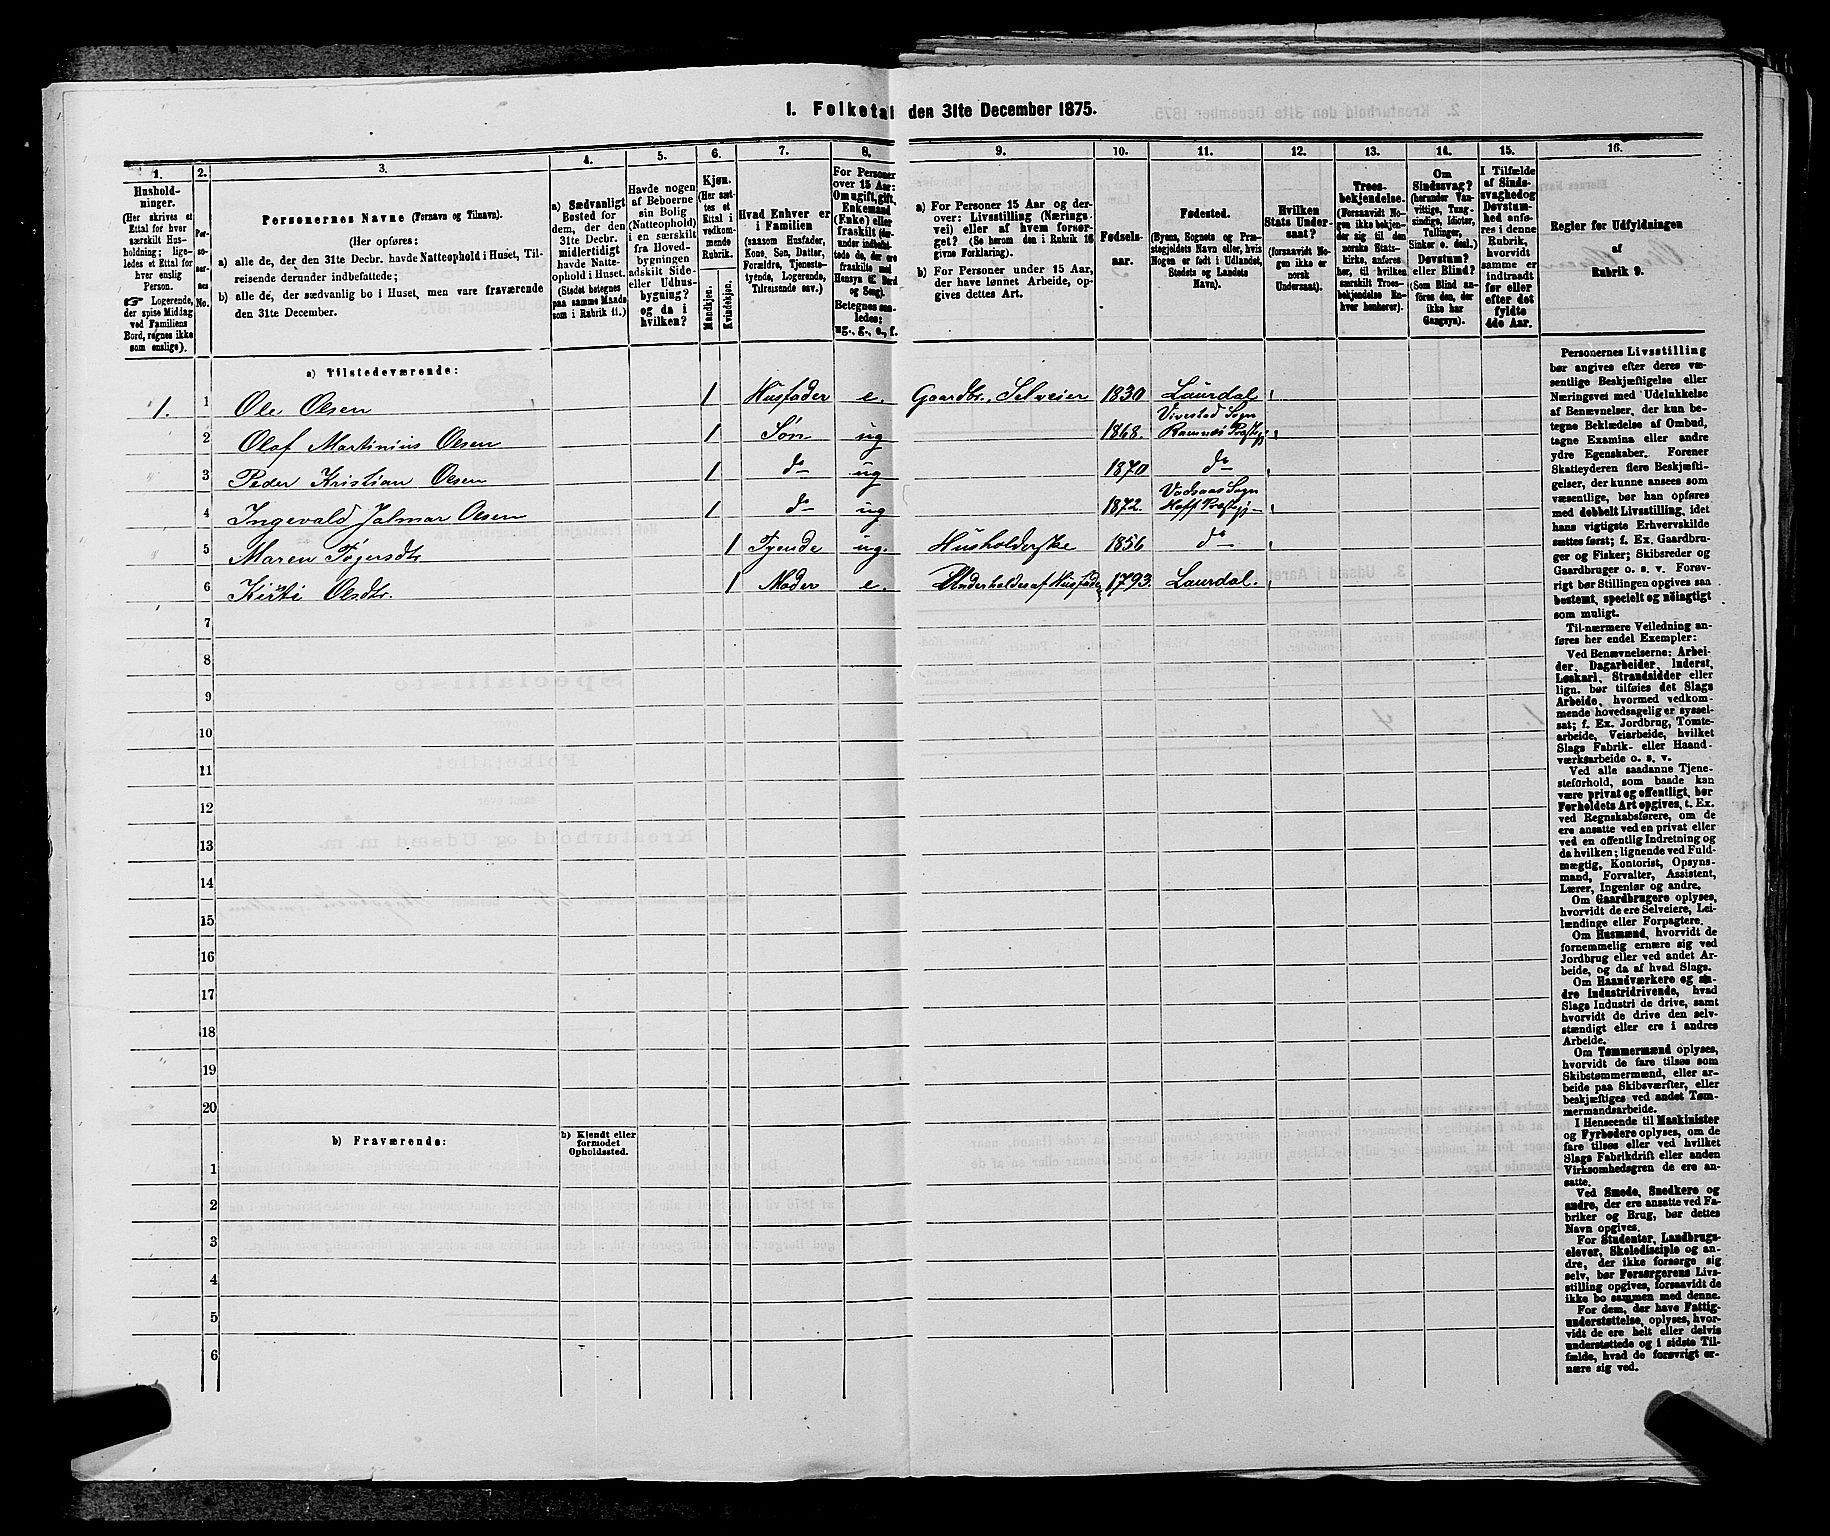 1. Folketal den 31te December 1875.
1. 2. 3. 4. 5. 6. 7. 8. 9. 10. 11. 12. 13. 14. 15. 16.
Hushold-
ninger.
(Her skrives et
Ettal for hver
særskilt Hus-
holdning; lige-
ledes et Ettal for
hver enslig
Person.
☞ Logerende,
der spise Middag
ved Familiens
Bord, regnes ikke
som enslige).
Per-
so-
ner-
nes
No.
Personernes Navne (Fornavn og Tilnavn).
(Her opføres:
a) alle de, der den 31te Decbr. havde Natteophold i Huset, Til-
reisende derunder indbefattede;
b) alle de, der sædvanlig bo i Huset, men vare fraværende
den 31te December.
a) Sædvanligt
Bosted for
dem, der den
31te Decbr.
midlertidigt
havde Natte-
ophold i Huset.
(Stedet betegnes
paa samme Maade
som i Rubrik 11.)
Havde nogen
af Beboerne
sin Bolig
(Natteophold)
i en særskilt
fra Hoved-
bygningen
adskilt Side-
eller Udhus-
bygning?
og da i
hvilken?
Kjøn.
(Her sæt-
tes et
Ettal i
vedkom-
mende
Rubrik.
Mandkjøn.
Kvindekjøn.
Hvad Enhver er
i Familien
(saasom Husfader,
Kone, Søn, Datter,
Forældre, Tjeneste-
tyende, Logerende,
Tilreisende osv.)
For Personer
over 15 Aar:
Om ugift, gift,
Enkemand
(Enke) eller
fraskilt (der-
under indbefat-
tede de, der ere
fraskilte med
Hensyn til Bord
og Seng).
Betegnes saa-
ledes:
ug., g., e., f.
a) For Personer 15 Aar og der-
over: Livsstilling (Nærings-
vei) eller af hvem forsør-
get? (Se herom den i Rubrik 16
givne Forklaring).
b) For Personer under 15 Aar,
der have lønnet Arbeide, op-
gives dettes Art.
Fødsels-
aar.
Fødested.
(Byens, Sognets og Præ-
stegjeldets Navn eller, hvis
Nogen er født i Udlandet,
Stedets og Landets
Navn).
Hvilken
Stats Under-
saat?
(forsaavidt No-
gen ikke er
norsk
Undersaat).
Troes-
bekjendelse.
(Forsaavidt No-
gen ikke bekjen-
der sig til den
norske Stats-
kirke, anføres
her, til hvilken
særskilt Troes-
bekjendelse En-
hver henhører).
Om
Sindssvag?
(herunder Van-
vittige, Tung-
sindige, Idioter,
Tullinger,
Sinker o. desl.)
Døvstum?
eller Blind?
(Som Blind an-
føres den, der
ikke har
Gangsyn).
I Tilfælde
af Sinds-
svaghed og
Døvstum-
hed anfø-
res i denne
Rubrik,
hvorvidt
samme er
indtraadt
før eller
efter det
fyldte
4de Aar.
Regler for Udfyldningen
af
Rubrik 9.
a) Tilstedeværende:
1. 1 Ole Olsen 1 Husfader e. Gaardbr., Selveier 1830 Laurdal
2 Olaf Martinius Olsen 1 Søn ug 1868. Vivestad Sogn Ramnæs Præstegj
3 Peder Kristian Olsen 1 do ug 1870 do
4 Ingevald Jalmar Olsen 1 do ug 1872. Vadsaas Sogn Hoff Præstegj
5 Maren Tøgersdtr 1 Tyende ug. Husholderske 1856 do
6 Kirsti Olsdtr. 1 Moder e. Underholdes af Husfader 1793. Laurdal.
7
8
9
10
11
12
13
14
15
16
17
18
19
20
b) Fraværende:
b) Kjendt eller
formodet
Opholdssted.
1
2
3
4
5
6
Personernes Livsstilling
bør angives efter deres væ-
sentlige Beskjæftigelse eller
Næringsvei med Udelukkelse
af Benævnelser, der kun be-
tegne Beklædelse af Ombud,
tagne Examina eller andre
ydre Egenskaber. Forener
Skatteyderen flere Beskjæfti-
gelser, der kunne ansees som
væsentlige, bør han opføres
med dobbelt Livsstilling, idet
hans vigtigste Erhvervskilde
sættes først; f. Ex. Gaardbru-
ger og Fisker; Skibsreder og
Gaardbruger o. s. v. Forøv-
rigt bør Stillingen opgives saa
bestemt, specielt og nøiagtigt
som muligt.
Til nærmere Veiledning an-
føres her endel Exempler:
Ved Benævnelserne: Arbei-
der, Dagarbeider, Inderst,
Løskarl, Strandsidder eller
lign. bør tilføies det Slags
Arbeide, hvormed vedkom-
mende hovedsagelig er syssel-
sat; f. Ex. Jordbrug, Tomte-
arbeide, Veiarbeide, hvilket
Slags Fabrik- eller Haand-
værksarbeide o. s. v.
Ved alle saadanne Tjene-
steforhold, som baade kan
være privat og offentligt, bør
Forholdets Art opgives, t. Ex.
ved Regnskabsførere, om de
ere ansatte ved en privat eller
en offentlig Indretning og
da hvilken; lignende ved Fuld-
mægtig, Kontorist, Opsyns-
mand, Forvalter, Assistent,
Lærer, Ingeniør og andre.
Om Gaardbrugere oplyses,
hvorvidt de ere Selveiere, Lei-
lændinge eller Forpagtere.
Om Husmænd, hvorvidt de
fornemmelig ernære sig ved
Jordbrug eller ved andet Ar-
beide, og da af hvad Slags.
Om Haandværkere og an-
dre Industridrivende, hvad
Slags Industri de drive, samt
hvorvidt de drive den selv-
stændigt eller ere i andres
Arbeide.
Om Tømmermænd oplyses,
hvorvidt de fare tilsøs som
Skibstømmermænd, eller ar-
beide paa Skibsværfter, eller
beskjæftiges ved andet Tøm-
mermandsarbeide.
I Henseende til Maskinister
og Fyrbødere oplyses, om de
fare tilsøs eller ved hvilket
Slags Fabrikdrift eller anden
Virksomhedsgren de ere an-
satte.
Ved Smede, Snedkere og
andre, der ere ansatte ved Fa-
briker og Brug, bør dettes
Navn opgives.
For Studenter, Landbrugs-
elever, Skoledisciple og an-
dre, der ikke forsørge sig
selv, bør Forsørgerens Livs-
stilling opgives, forsaavidt de
ikke bo sammen med denne.
For dem, der have Fattig-
understøttelse, oplyses, hvor-
vidt de ere helt eller delvis
understøttede og i sidste Til-
fælde, hvad de forøvrigt er-
nære sig ved.